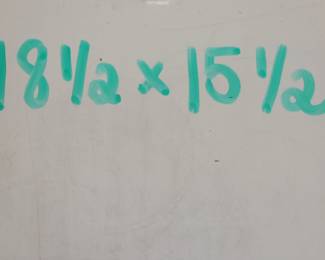 18 1/2 x 15 1/2